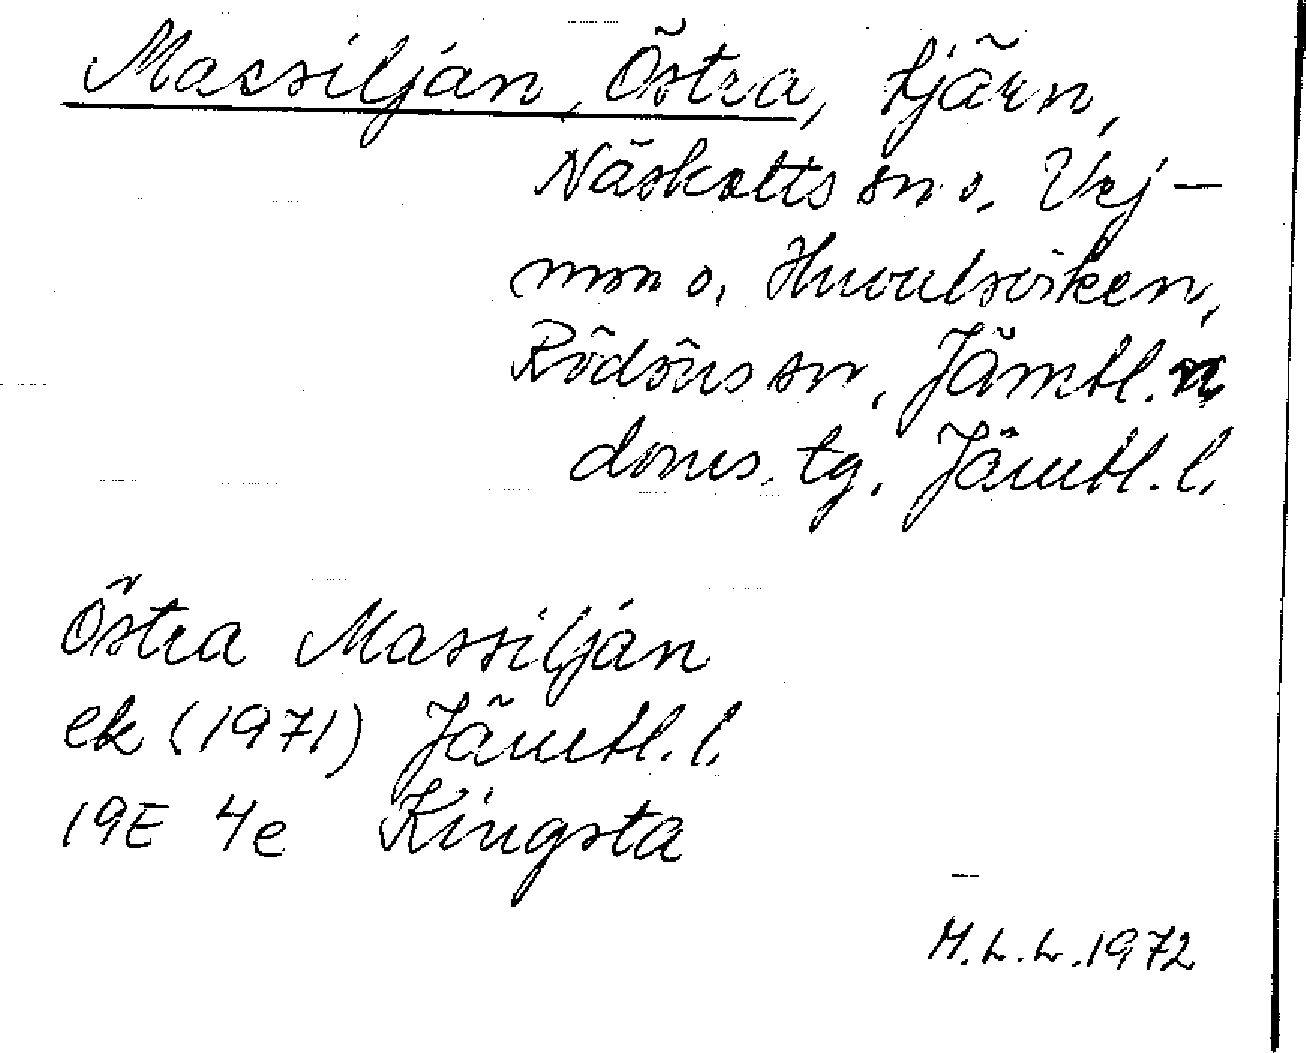 Massiljån, Östra, tjärn,
Näskotts sn o.
mon o. Huvulsviken,
Rödöns sn, Jämtl. n
doms. tg. Jämtl. l.
Östra Massiljån
ek (1971) Jämtl. l.
19E 4e Kingsta
M.L.L. 1972